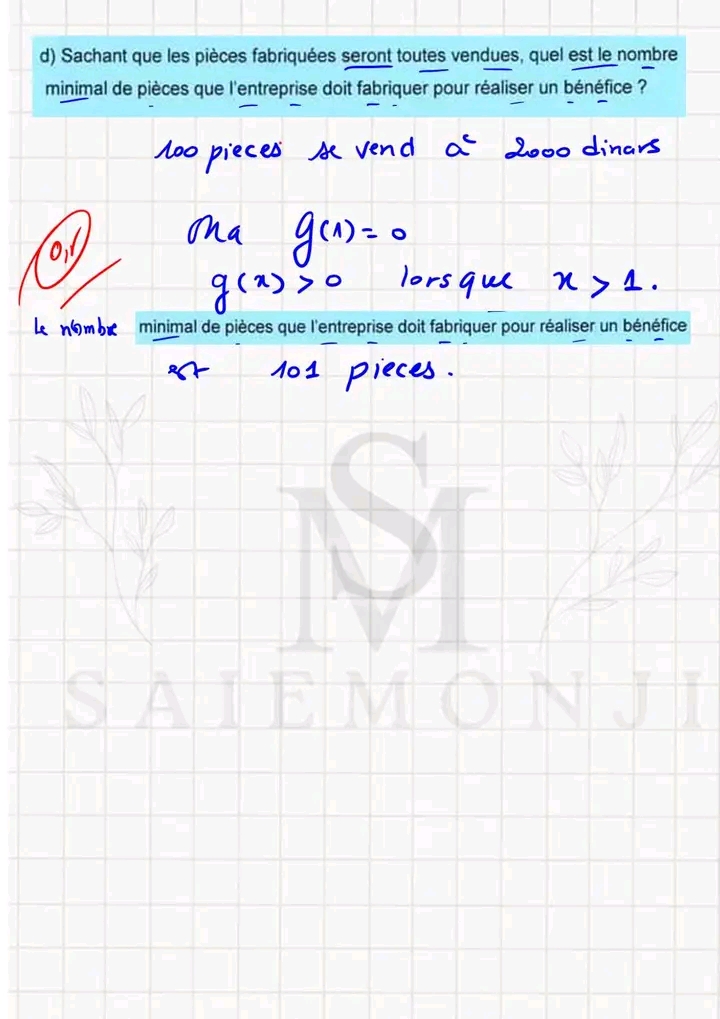 d) Sachant que les pièces fabriquées seront toutes vendues, quel est le nombre
minimal de pièces que l'entreprise doit fabriquer pour réaliser un bénéfice ?
100 pieces se vend à 2000 dinars
On a g(1) = 0
g(x) > 0 lorsque x > 1.
Le nombre minimal de pièces que l'entreprise doit fabriquer pour réaliser un bénéfice
est 101 pieces.
SM
SAIEMONJI